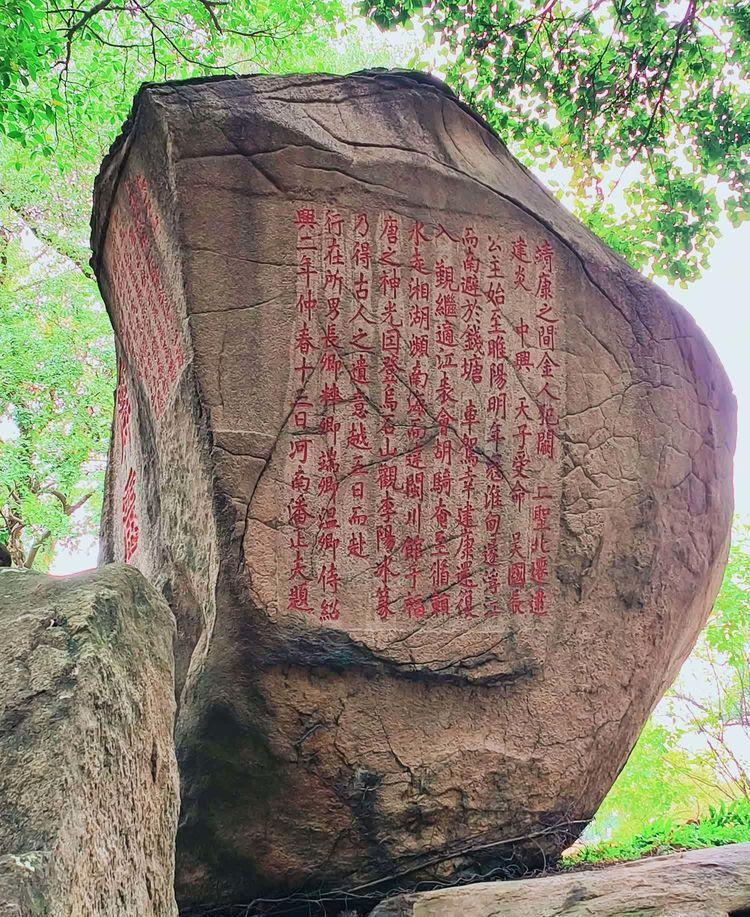 靖康之間金人犯闕 上聖北遷逮
建炎 中興 天子受命 吳國長
公主始至睢陽明年寇淮甸遂浮江
而南避於錢塘 車駕幸建康還復
入 覲繼適江表會胡騎奄至循贛
水走湘湖瀕南海而達閩川館于福
唐之神光因登烏石山觀李陽冰篆
乃得古人之遺意越五日而赴
行在所男長卿粹卿端卿溫卿侍紹
興二年仲春十二日河南潘正夫題